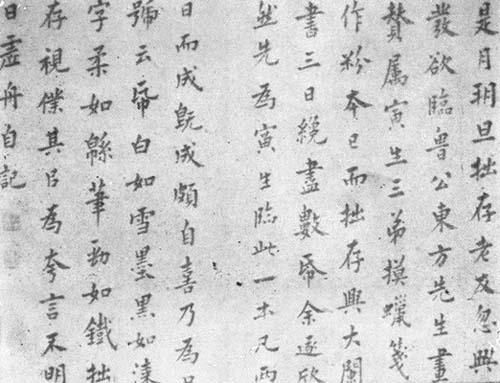 是月朔旦拙存老友忽興
發欲臨魯公東方先生畫
贊属寅生三弟摸蠟箋
作粉夲已而拙存興大闌
書三日纔盡數帋余遂欣
然先為寅生臨此一夲凡兩
日而成既成頗自喜乃為
號云帋白如雪墨黑如漆
字柔如緜筆勁如鐵拙
存視僕其㠯為夸言不明
日虛舟自記